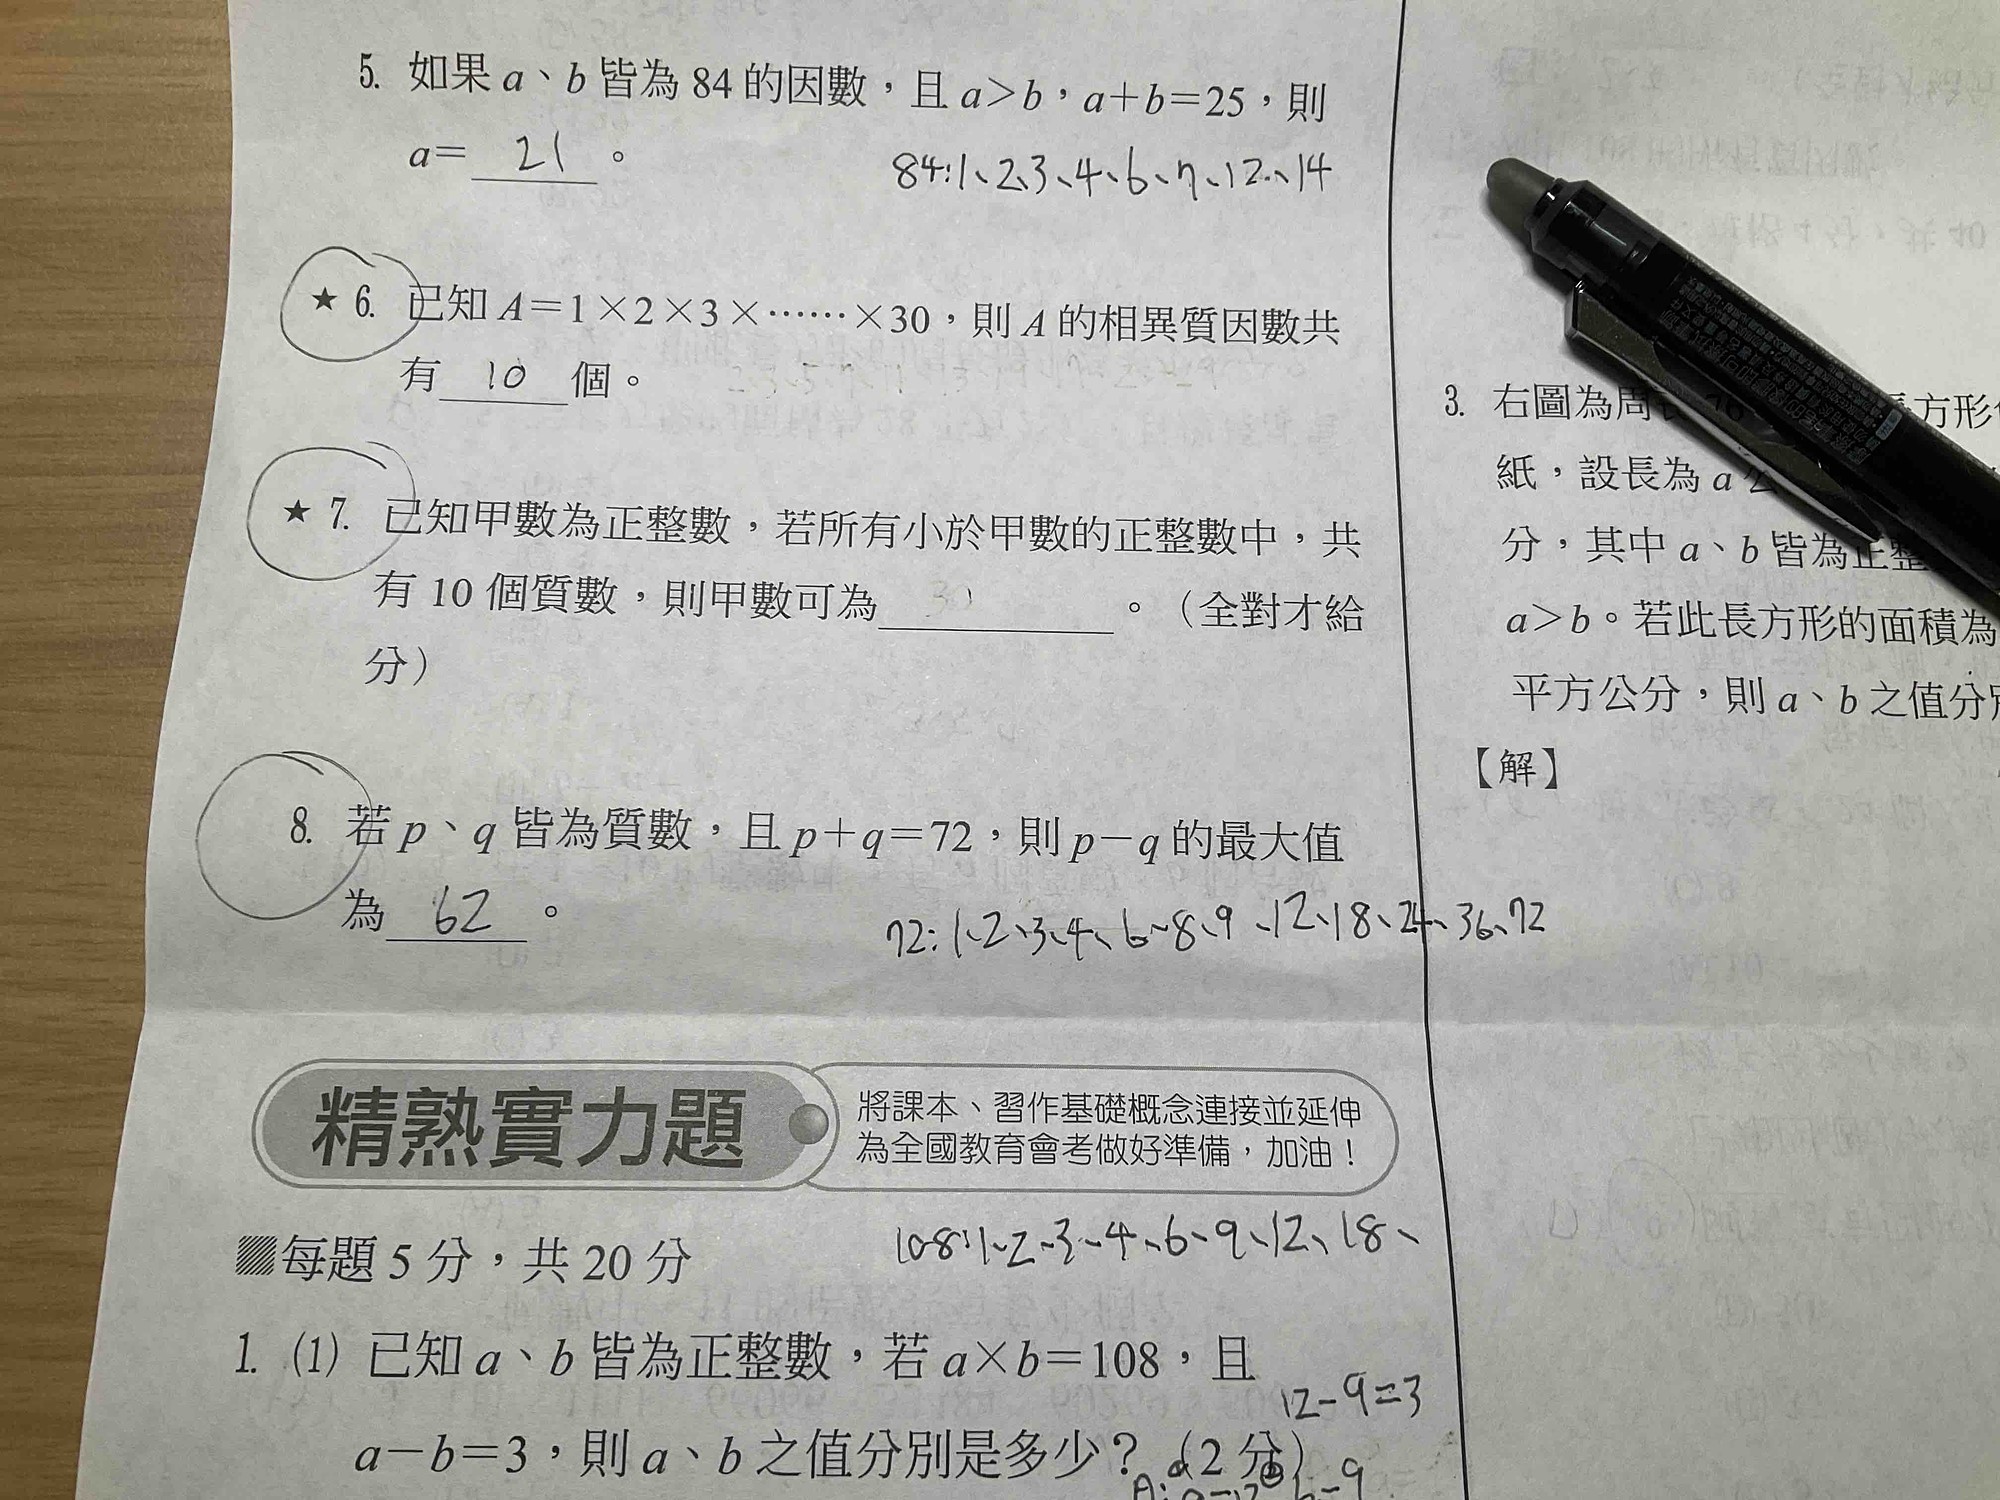 5. 如果 a、b 皆為 84 的因數，且 a>b，a+b=25，則
a= 21 。
84:1、2、3、4、6、7、12、14
★ 6. 已知 A=1×2×3×……×30，則 A 的相異質因數共
有 10 個。
★ 7. 已知甲數為正整數，若所有小於甲數的正整數中，共
有 10 個質數，則甲數可為 30 。（全對才給
分）
8. 若 p、q 皆為質數，且 p+q=72，則 p-q 的最大值
為 62 。
72:1、2、3、4、6、8、9、12、18、24、36、72
精熟實力題
將課本、習作基礎概念連接並延伸
為全國教育會考做好準備，加油！
每題 5 分，共 20 分
108:1、2、3、4、6、9、12、18、
1. (1) 已知 a、b 皆為正整數，若 a×b=108，且
12-9=3
a-b=3，則 a、b 之值分別是多少？（2 分）
3. 右圖為周長 76 長方形
紙，設長為 a 公
分，其中 a、b 皆為正整
a>b。若此長方形的面積為
平方公分，則 a、b 之值分別
【解】